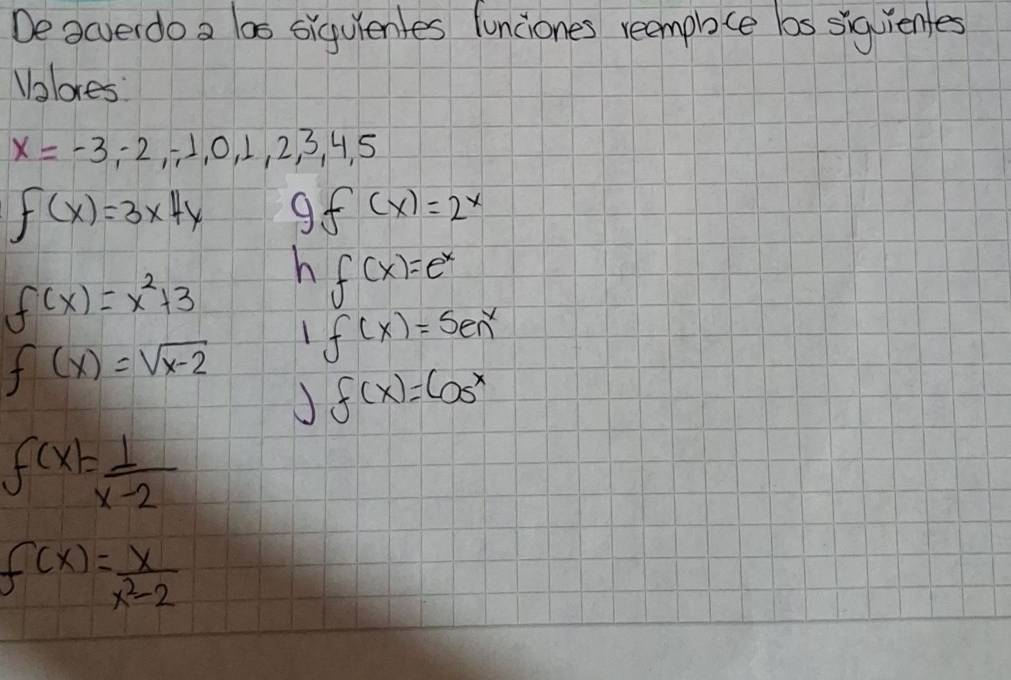 De acuerdo a las siguientes funciones reemplace los siguientes
Valores:
x = -3,-2,-1,0,1,2,3,4,5
f(x)=3x+y
f(x)=x²+3
f(x)=√x-2
f(x)=1/x-2
f(x)=x/x²-2
g f(x)=2ˣ
h f(x)=eˣ
I f(x)=Senˣ
J f(x)=Cosˣ